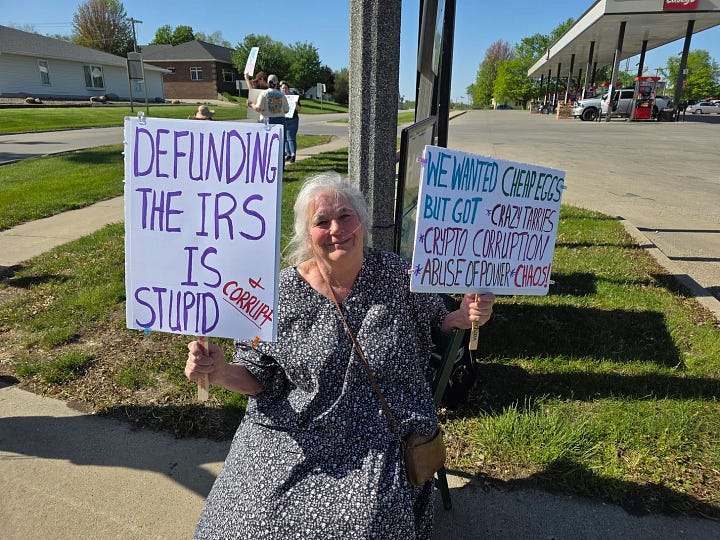 DEFUNDING
THE IRS
IS
STUPID
+
CORRUPT
WE WANTED CHEAP EGGS
BUT GOT *CRAZY TARIFFS
*CRYPTO CORRUPTION*
*ABUSE OF POWER *CHAOS!
Casey's